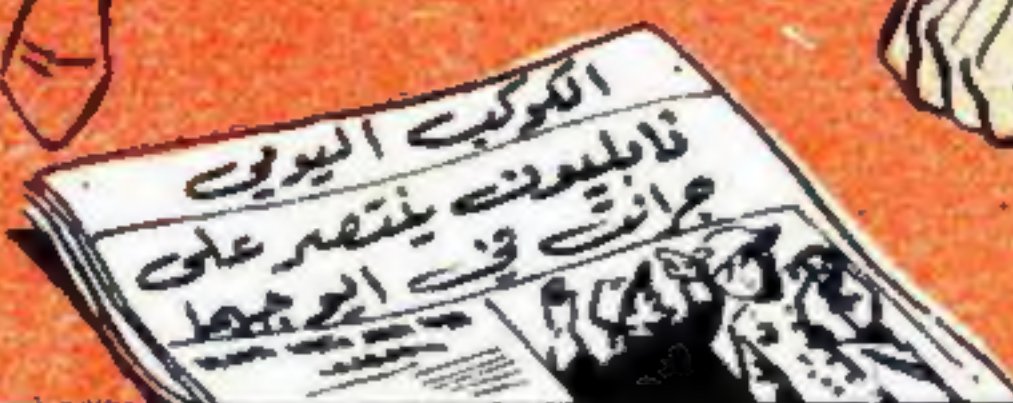 الكوكب اليومى
نابليون ينتصر على
جرانت فى ايوجيما